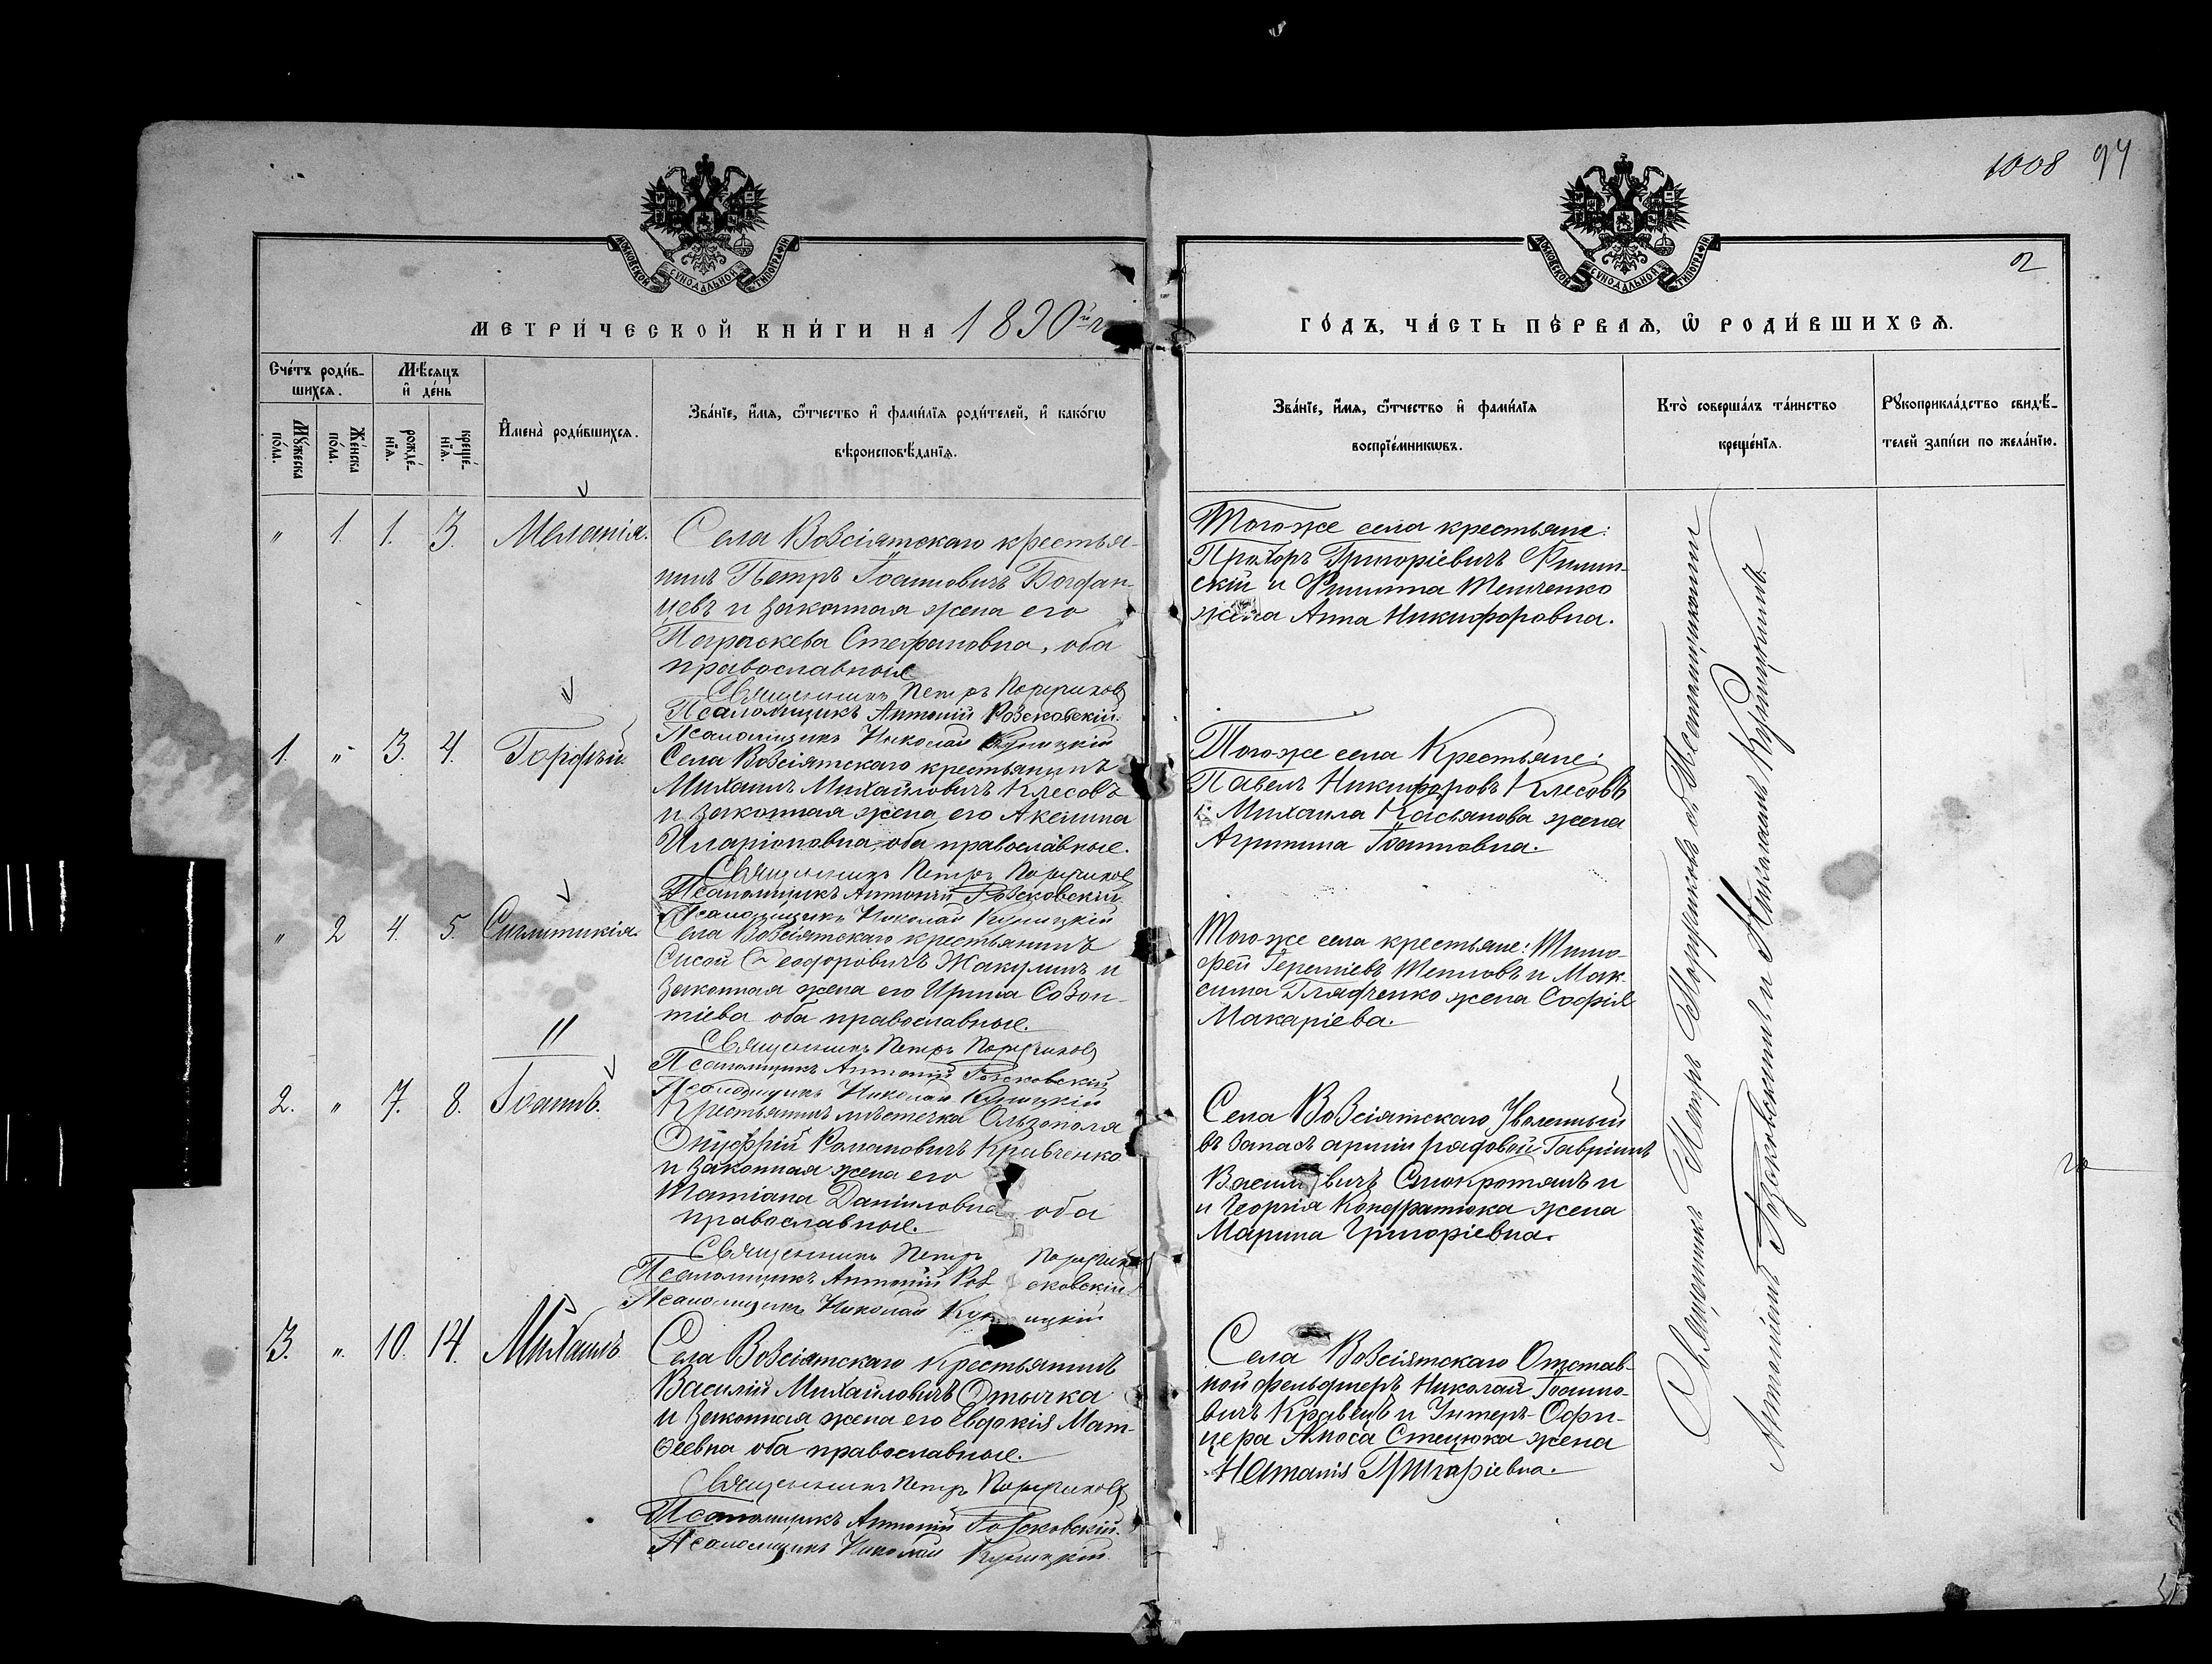 1008 94
2
МОСКОВСКОЙ СѴНОДАЛЬНОЙ ТИПОГРАФІИ
МОСКОВСКОЙ СѴНОДАЛЬНОЙ ТИПОГРАФІИ
МЕТРИ́ЧЕСКОЙ КНИ́ГИ НА 1890й г
ГО́ДЪ, ЧА́СТЬ ПЕ́РВАѦ, Ѡ҆ РОДИ́ВШИХСѦ.
Сче́тъ роди́в-
шихсѧ.
Мꙋ́жеска
по́ла.
Же́нска
по́ла.
Мѣ́сѧцъ
и҆ де́нь
рожде́-
нїѧ.
креще́-
нїѧ.
И҆мена̀ роди́вшихсѧ.
Зва́нїе, и҆́мѧ, ѻ҆́тчество и҆ фами́лїѧ роди́телей, и҆ како́гѡ
вѣ́роисповѣ́данїѧ.
Зва́нїе, и҆́мѧ, ѻ҆́тчество и҆ фами́лїѧ
воспрїе́мникѡвъ.
Кто̀ соверша́лъ та́инство
креще́нїѧ.
Рꙋкоприкла́дство свидѣ́-
телей за́писи по жела́нїю.
" 1. 1. 3. Меланія.
Села Возсіятскаго крестья-
нинъ Петръ Іоанновичъ Богдан-
цевъ и законная жена его
Параскева Стефановна, оба
православные
Священникъ Петръ
Псаломщикъ Антоній Розсковскій.
Псаломщикъ Николай Куницкій
Того-же села крестьяне:
Прохоръ Григоріевичъ Филин-
скій и Филиппа Тенченко
жена Анна Никифоровна.
1. " 3. 4. Гордѣй.
Села Возсіятскаго крестьянинъ
Михаилъ Михайловичъ Клесовъ
и законная жена его Акилина
Иларіоновна, оба православные.
Священникъ Петръ
Псаломщикъ Антоній Розсковскій.
Псаломщикъ Николай Куницкій
Того-же села Крестьяне:
Павелъ Никифоровъ Клесовъ
и Михаила Касьянова жена
Агрипина Іоанновна.
" 2 4. 5. Синклитикія.
Села Возсіятскаго крестьянинъ
Сисой Ѳеодоровичъ Жакулинъ и
законная жена его Ирина Созон-
тіева оба православные.
Священникъ Петръ
Псаломщикъ Антоній Розсковскій
Псаломщикъ Николай Куницкій
Того-же села крестьяне: Тимо-
фей Тепловъ и Мак-
сима Гладченко жена Софія
Макаріева.
11
2. " 7. 8. Іоаннъ.
Крестьянинъ мѣстечка Ольгополя
Онуфрій Романовичъ Кравченко
и законная жена его
Татіана Даніиловна оба
православные.
Священникъ Петръ
Псаломщикъ Антоній Роз сковскій
Псаломщикъ Николай Кун ицкій
Села Возсіятскаго Уволенный
въ Запасъ арміи рядовой Гавріилъ
Васил вичъ и
и Георгія Кондратюка жена
Марина Григоріевна.
3. ". 10. 14. Михаилъ
Села Возсіятскаго Крестьянинъ
Василій Михайловичъ Отычка
и законная жена его Евдокія Мат-
ѳеевна оба православные.
Священникъ Петръ
Псаломщикъ Антоній Розсковскій.
Псаломщикъ Николай Куницкій.
Села Возсіятскаго Отстав-
ной фельдшеръ Николай Іоанно-
вичъ Кравецъ и Унтеръ-Офи-
цера Амоса Стецюка жена
Наталія Григоріевна.
Священникъ Петръ съ Псаломщиками
Антоніемъ Розсковскимъ и Николаемъ Куницкимъ.